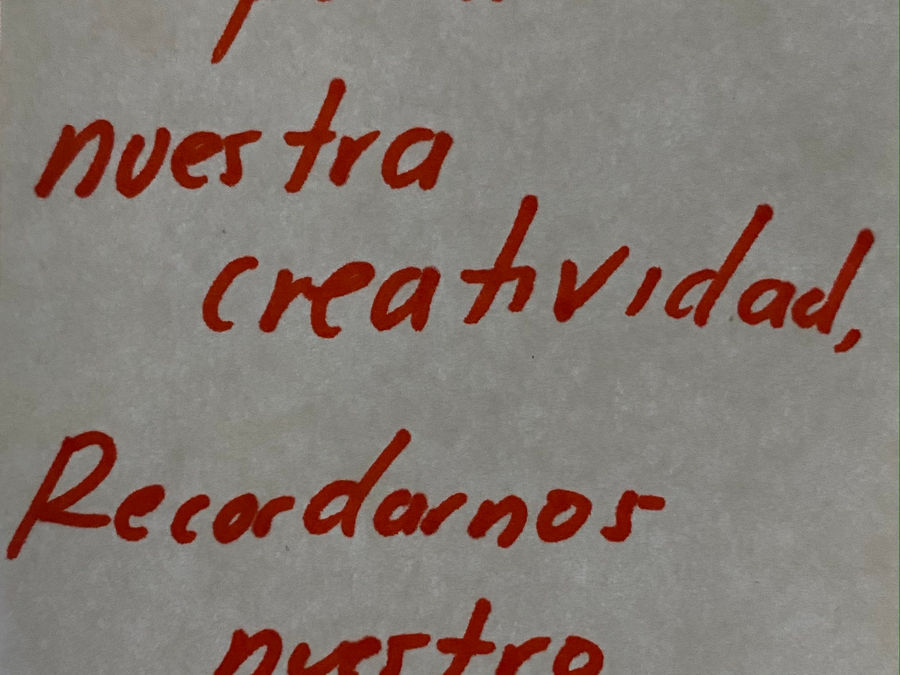 nuestra
creatividad,
Recordarnos
nuestro